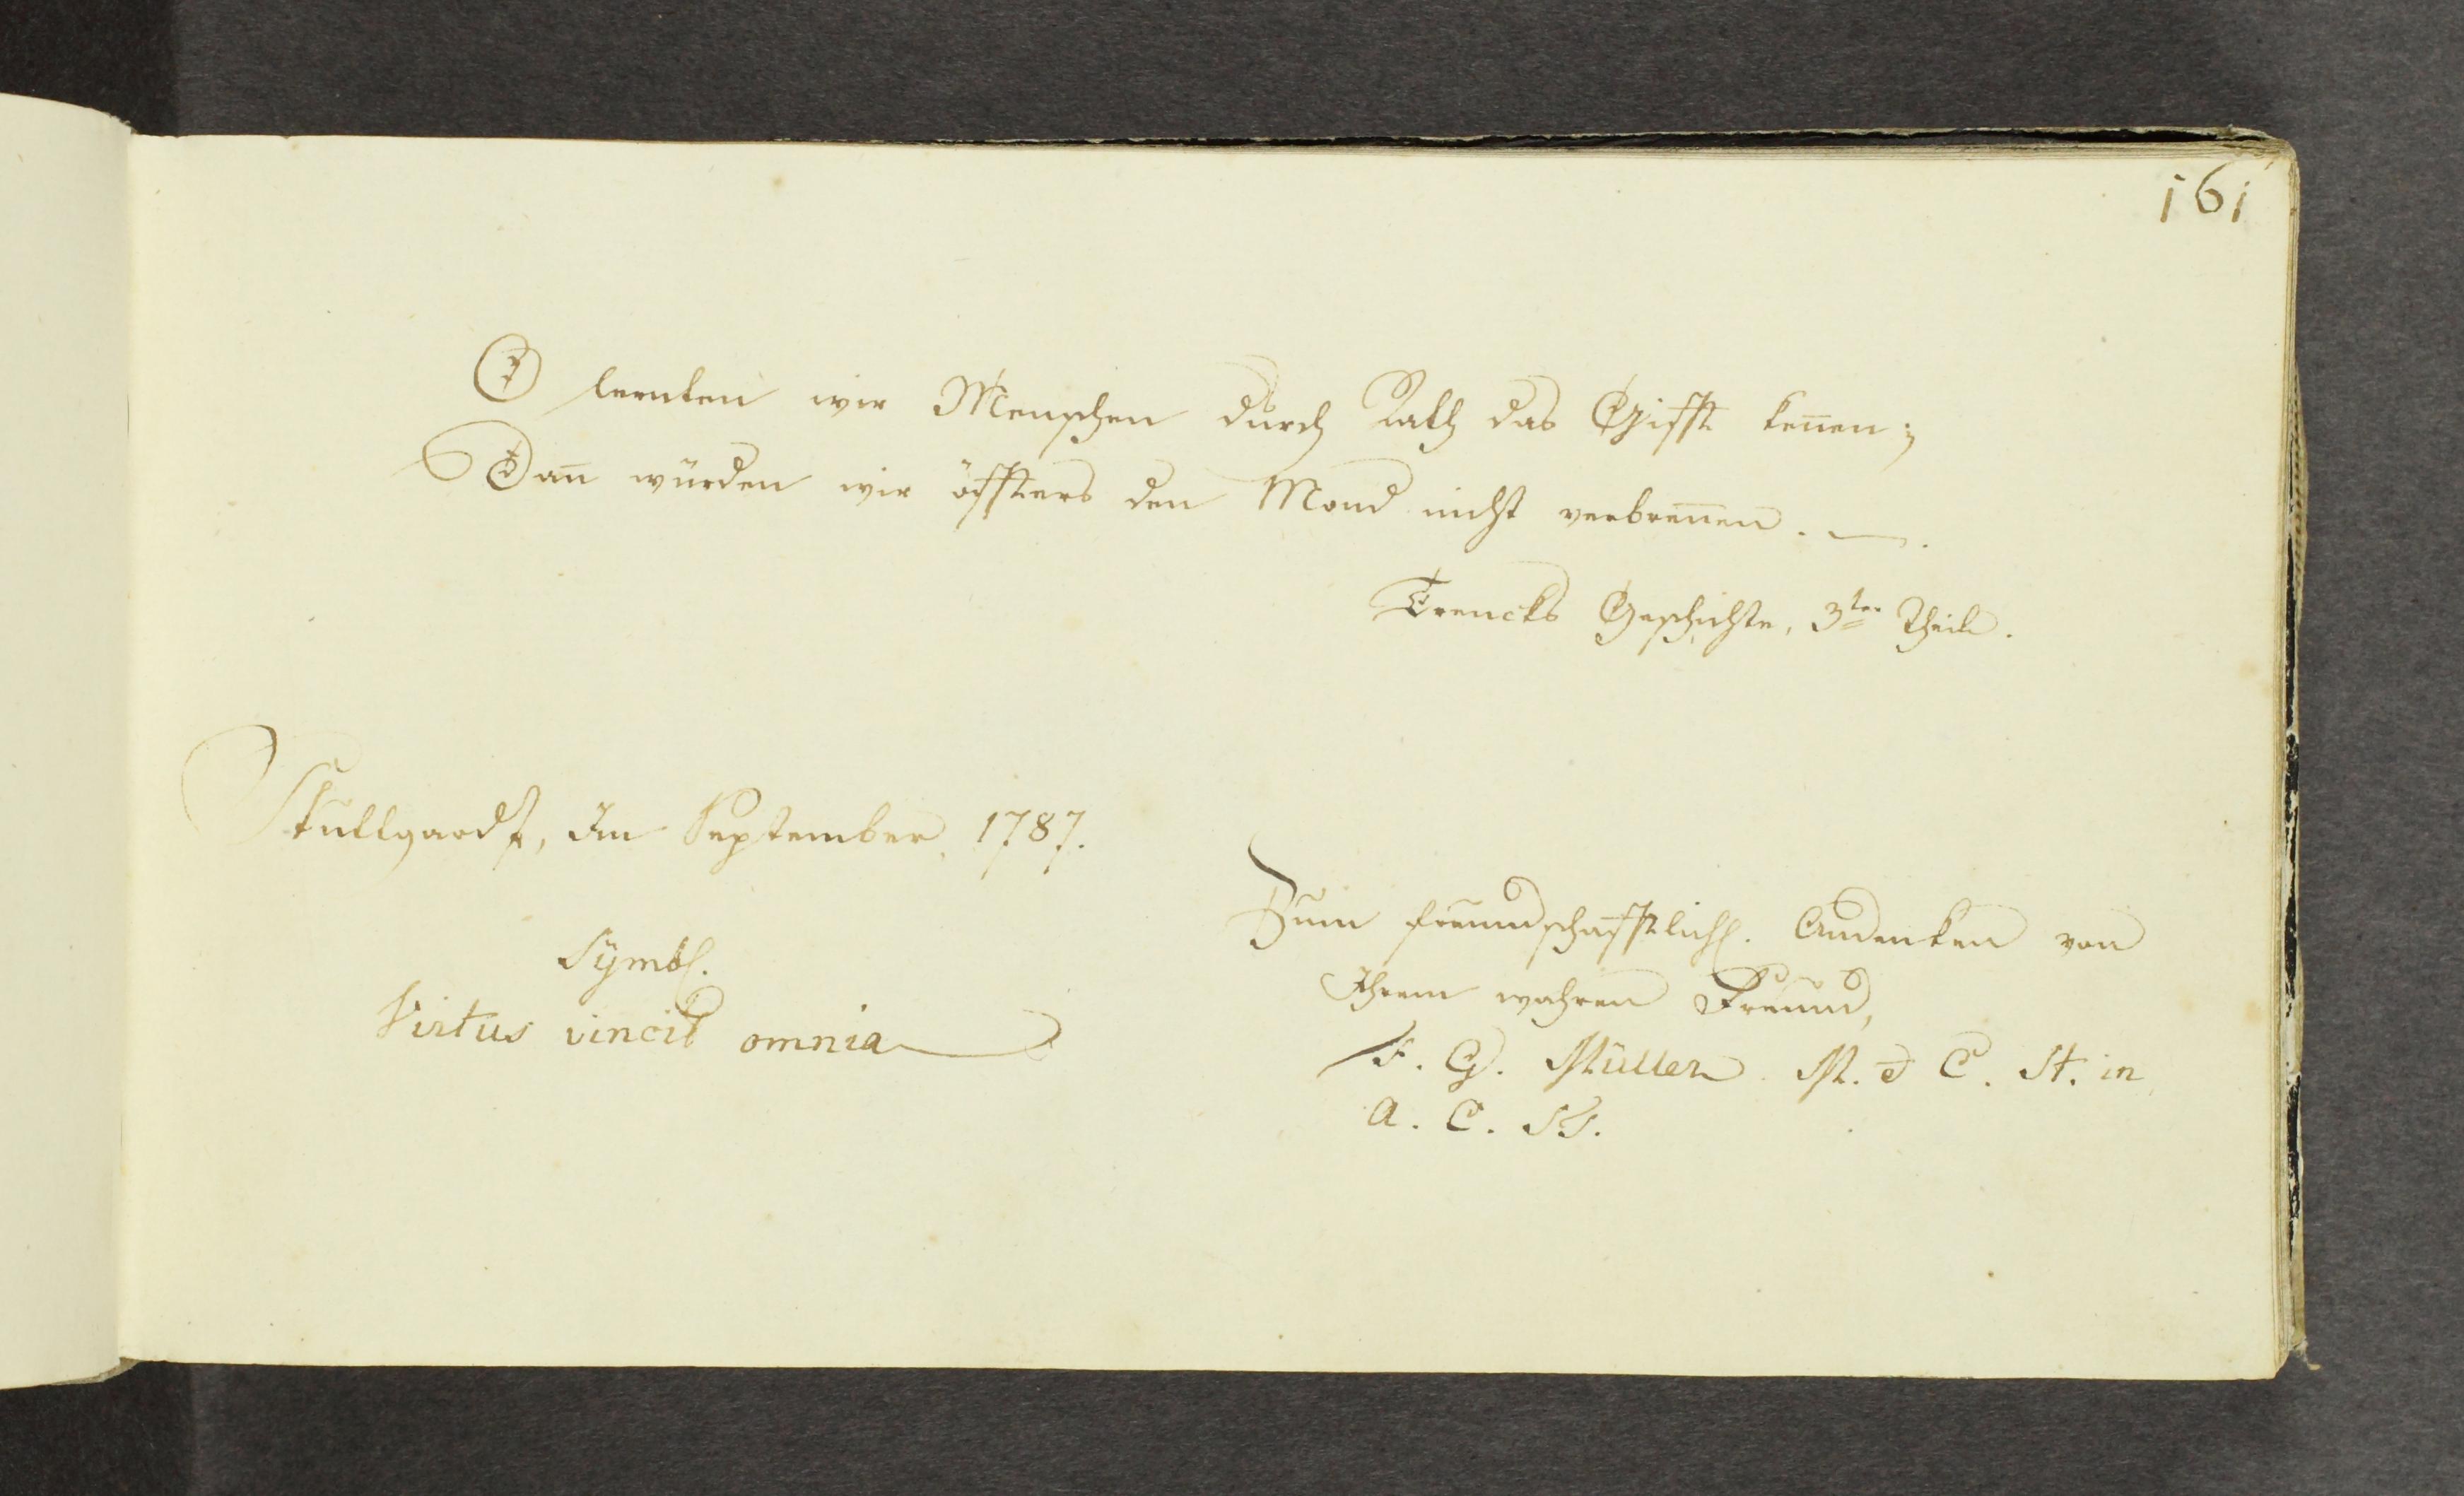 161
O lernten wir Menschen durch Rath das Gifft keñen;
Dañ würden wir öffters den Mond nicht verbreñen. —.
Trencks Geschichte, 3ter Theil.
Stuttgardt, Im September, 1787.
Symbl.
Virtus vincit omnia
Zum freundschafftlich. Andenken von
Ihrem wahren Freund,
F. G. Müller. M. & C. St. in
A. C. SS.